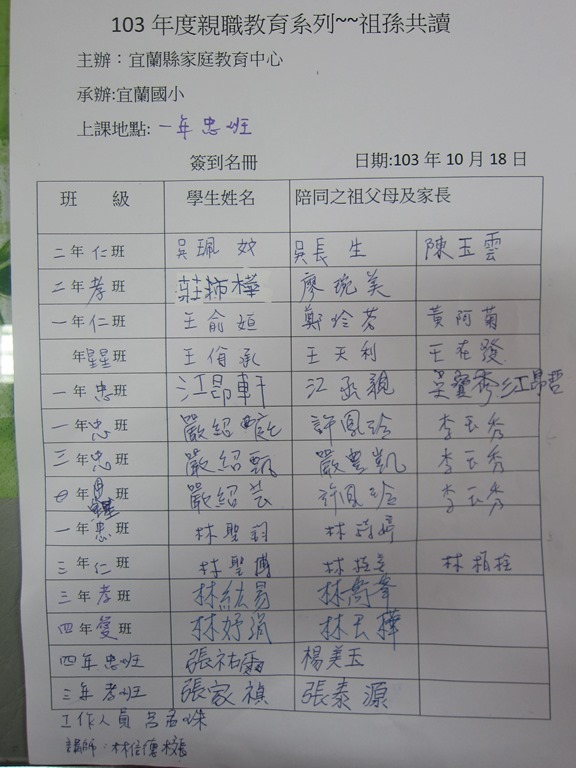 103 年度親職教育系列~~祖孫共讀
主辦：宜蘭縣家庭教育中心
承辦:宜蘭國小
上課地點: 一年忠班
簽到名冊 日期:103 年 10 月 18 日
班 級 學生姓名 陪同之祖父母及家長
二年仁班 吳珮 吳長生 陳玉雲
二年孝班 莊 樺 廖琬美
一年仁班 王俞姮 鄭玲君 黃阿菊
年 班 王 承 王天利 王在發
一年忠班 江昂軒 江丞 吳寶秀 江昂哲
一年忠班 嚴紹 許鳳玲 李玉秀
三年忠班 嚴紹甄 嚴豊凱 李玉秀
年 班 嚴紹芸 許鳳玲 李玉秀
一年忠班 林聖鈞 林 婷
三年仁班 林聖博 林 林栢栓
三年孝班 林紘易 林 峯
四年愛班 林妤涓 林玉樺
四年忠班 張祐 楊美玉
三年孝班 張家禎 張泰源
工作人員 呂
講師：林信德校長